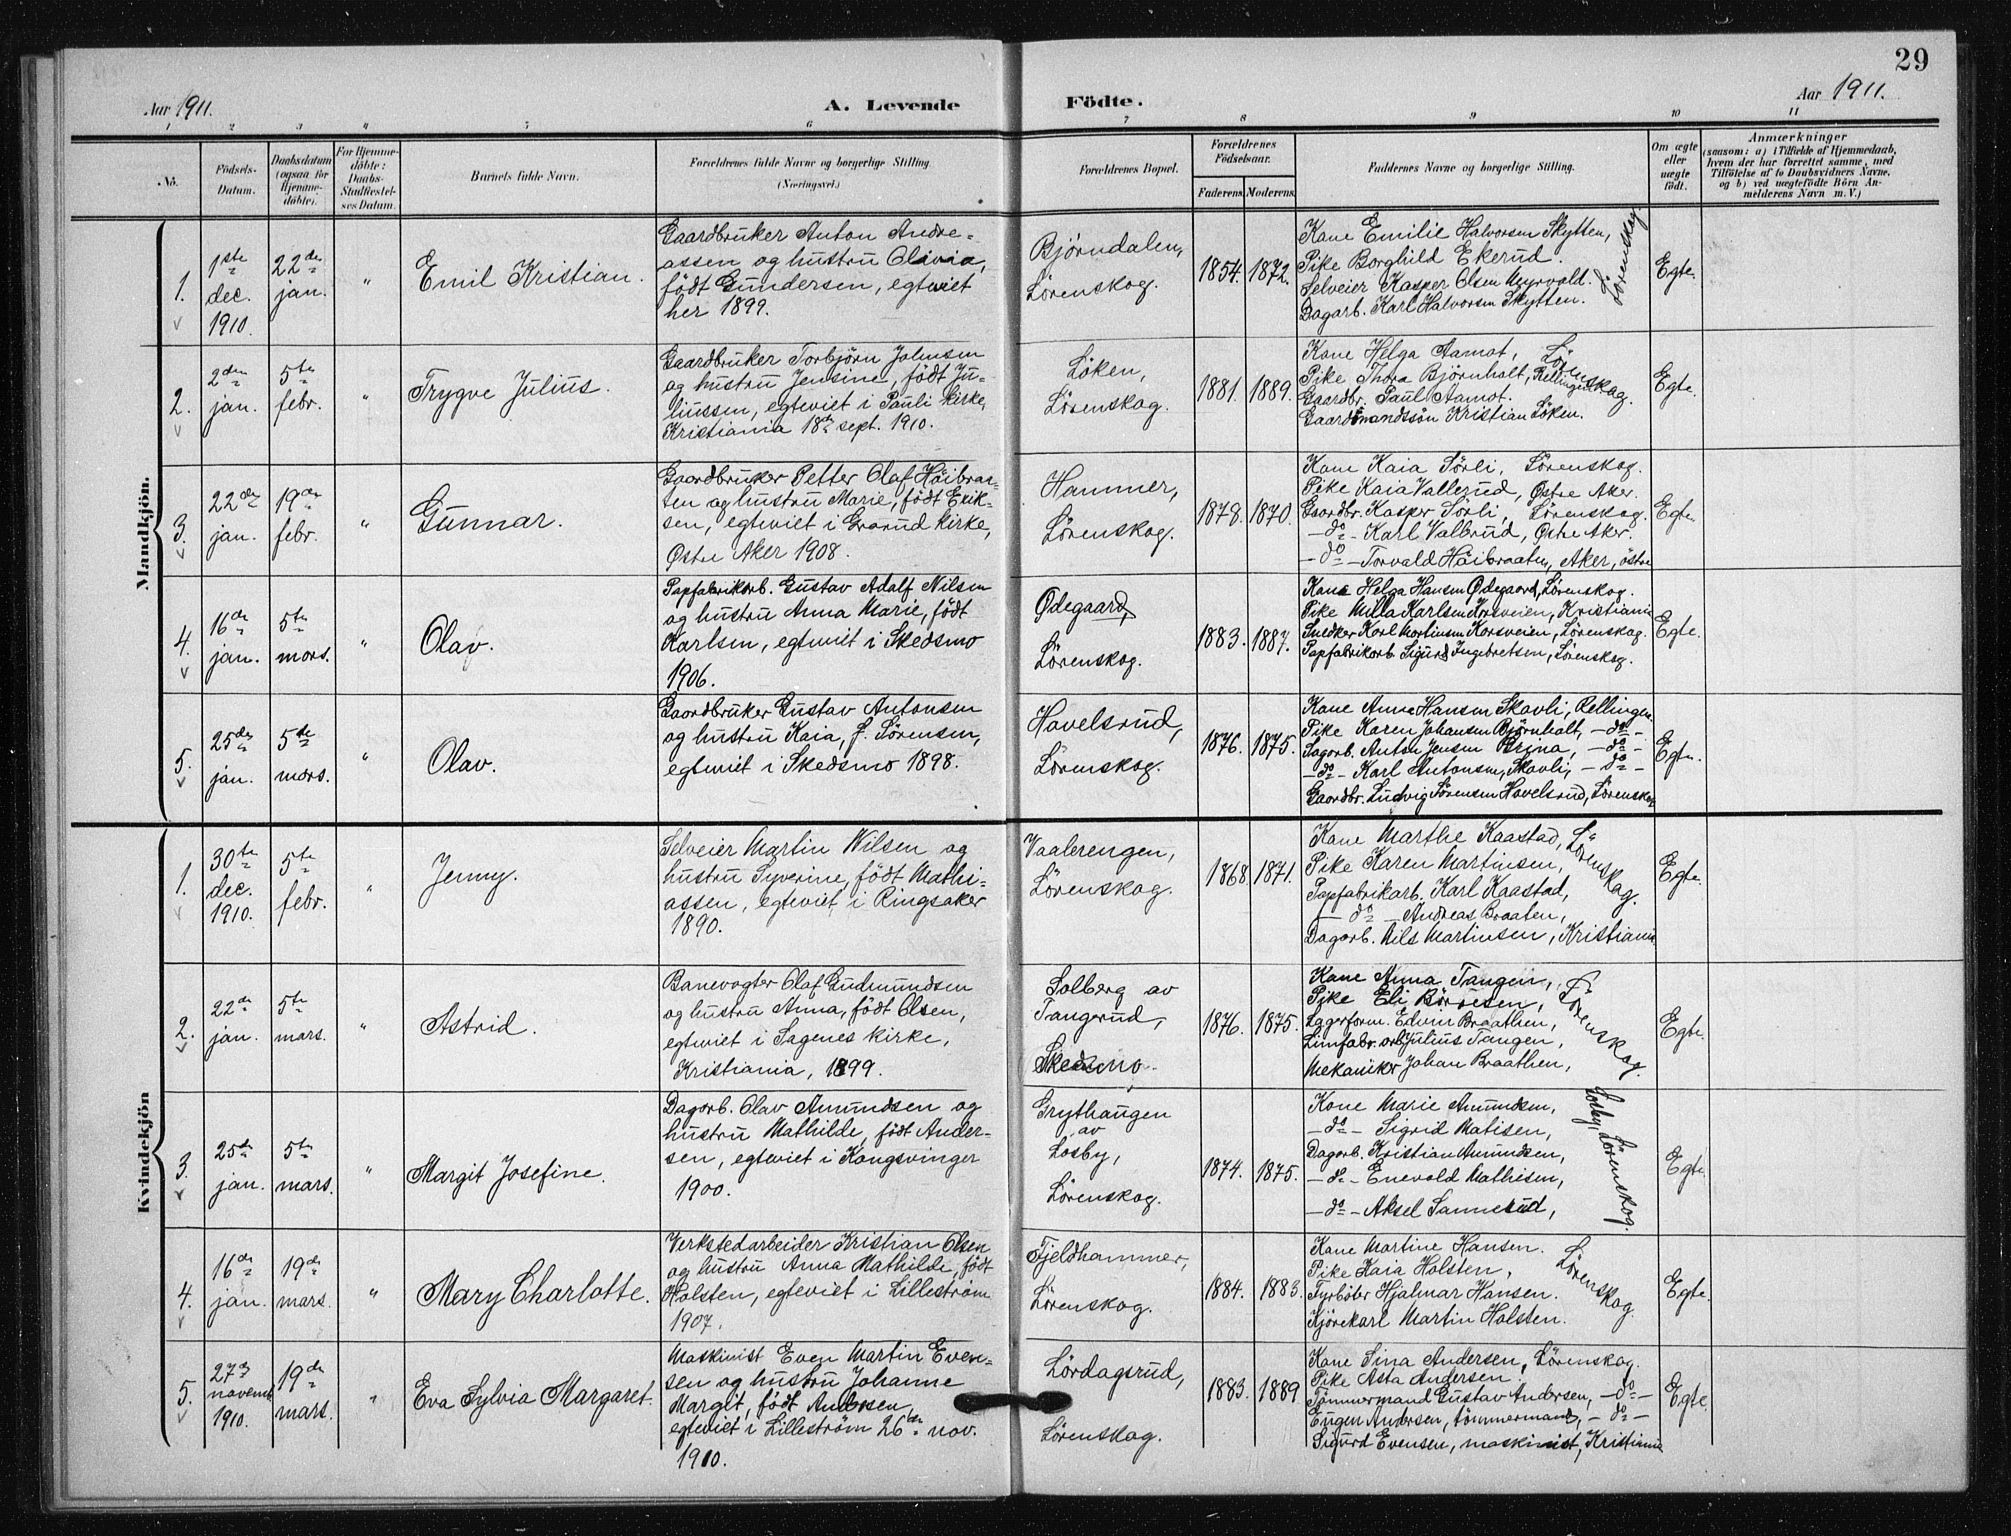 29
Aar 1911.
A. Levende
Födte.
Aar 1911.
1 2 3 4 5 6 7 8 9 10 11
No.
Födsels-
Datum.
Daabsdatum
(ogsaa for
Hjemme-
döbte).
For Hjemme-
döbte:
Daabs-
Stadfæstel-
ses Datum.
Barnets fulde Navn.
Forældrenes fulde Navne og borgerlige Stilling.
(Næringsvei.)
Forældrenes Bopæl.
Forældrenes
Födselsaar.
Faderens.
Moderens.
Faddernes Navne og borgerlige Stilling.
Om ægte
eller
uægte
födt.
Anmærkninger
(saasom: a) i Tilfælde af Hjemmedaab,
hvem der har forrettet samme, med
Tilföielse af to Daabsvidners Navne,
og b) ved uægtefödte Börn An-
melderens Navn m. V.)
Mandkjön.
1.
1ste
dec.
1910.
22de
jan.
"
Emil Kristian.
Gaardbruker Anton Andre-
assen og hustru Olivia,
født Gundersen, egteviet
her 1899.
Bjørndalen,
Lørenskog.
1854.
1872.
Kone Emilie Halvorsen Skytten,
Pike Borghild Ekerud.
Selveier Kasper Olsen Myrvold.
Dagarb. Karl Halvorsen Skytten.
Lørenskog
Egte.
2.
2den
jan.
5te
febr.
"
Trygve Julius.
Gaardbruker Torbjörn Johnsen
og hustru Jensine, født Ju-
liussen, egteviet i Pauli kirke,
Kristiania 18de sept. 1910.
Løken,
Lørenskog.
1881.
1889.
Kone Helga Aamot,
Pike Thora Björnholt, Rellingen
Gaardbr. Paul Aamot.
Gaardmandssön Kristian Løken.
Lörenskog.
Egte.
3.
22de
jan.
19de
febr.
"
Gunnar.
Gaardbruker Petter Olaf Höibraa-
ten og hustru Marie, født Erik-
sen, egteviet i Grorud kirke,
Østre Aker 1908.
Hammer,
Lørenskog.
1878.
1870.
Kone Kaia Sörli, Lørenskog.
Pike Kaia Vallerud, Østre Aker.
Gaardbr. Kasper Sörli, Lørenskog.
- do - Karl Valbrud, Østre Aker.
- do - Torvald Höibraaten, Aker, östre
Egte.
4.
16de
jan.
5te
mars.
"
Olav.
Papfabrikarb. Gustav Adolf Nilsen
og hustru Anna Marie, født
Karlsen, egteviet i Skedsmo
1906.
Ødegaard,
Lørenskog.
1883.
1887.
Kone Helga Hansen Ødegaard, Lørenskog.
Pike Milla Karlsen Korsveien, Kristiania
Snedker Karl Martinsen Korsveien, Lørenskog.
Papfabrikarb. Sigurd Ingebretsen, Lørenskog.
Egte.
5.
25de
jan.
5te
mars.
"
Olav.
Gaardbruker Gustav Antonsen
og hustru Kaia, f. Sörensen,
egteviet i Skedsmo 1898.
Hovelsrud,
Lørenskog.
1876.
1875.
Kone Anna Hansen Skovli, Rellingen
Pike Karen Johansen Björnholt, - do -
Sagarb. Anton Jensen Bryna, - do -
- do - Karl Antonsen, Skovli, - do -
Gaardbr. Ludvig Sörensen Hovelsrud, Lørenskog
Egte.
Kvindekjön
1.
30te
dec.
1910.
5te
febr.
"
Jenny.
Selveier Martin Nilsen og
hustru Syverine, født Mathi-
assen, egteviet i Ringsaker
1890.
Vaalerengen,
Lørenskog.
1868.
1871.
Kone Marthe Kaastad,
Pike Karen Martinsen,
Papfabrikarb. Karl Kaastad,
- do - Andreas Braaten,
Dagarb. Nils Martinsen, Kristiania
Lörenskog.
Egte.
2.
22de
jan.
5te
mars.
"
Astrid.
Banevogter Olaf Gudmundsen
og hustru Anna, født Olsen,
egteviet i Sagenes kirke,
Kristiania, 1899.
Solberg av
Tangerud,
Skedsmo.
1876.
1875.
Kone Anna Tangen,
Pike Eli Börresen,
Lagerform. Edvin Braathen,
Limfabr.arb Julius Tangen,
Mekaniker Johan Braathen,
Lörenskog.
Egte.
3.
25de
jan.
5te
mars.
"
Margit Josefine.
Dagarb. Olav Amundsen og
hustru Mathilde, født Ander-
sen, egteviet i Kongsvinger
1900.
Grythaugen
av
Losby,
Lørenskog.
1874.
1875.
Kone Marie Amundsen,
- do - Sigrid Matisen,
Dagarb. Kristian Amundsen,
- do - Enevold Mathisen,
- do - Aksel Sannerud,
Losby, Lörenskog.
Egte.
4.
16de
jan.
19de
mars.
"
Mary Charlotte.
Verkstedarbeider Kristian Olsen
og hustru Anna Mathilde, født
Holsten, egteviet i Lilleström
1907.
Fjeldhammer,
Lørenskog.
1884.
1883.
Kone Martine Hansen.
Pike Kaia Holsten,
Fyrböter Hjalmar Hansen.
Kjörekarl Martin Holsten.
Lörenskog.
Egte.
5.
27de
novemb.
1910.
19de
mars.
"
Eva Sylvia Margaret.
Maskinist Even Martin Even-
sen og hustru Johanne
Margit, født Andersen,
egteviet i Lilleström 26de nov.
1910.
Lördagsrud,
Lørenskog.
1883.
1889
Kone Sina Andersen, Lørenskog.
Pike Asta Andersen.
Tömmermand Gustav Andersen, - do -
Eugen Andersen, tömmermand, - do -
Sigurd Evensen, maskinist, Kristiania
Egte.